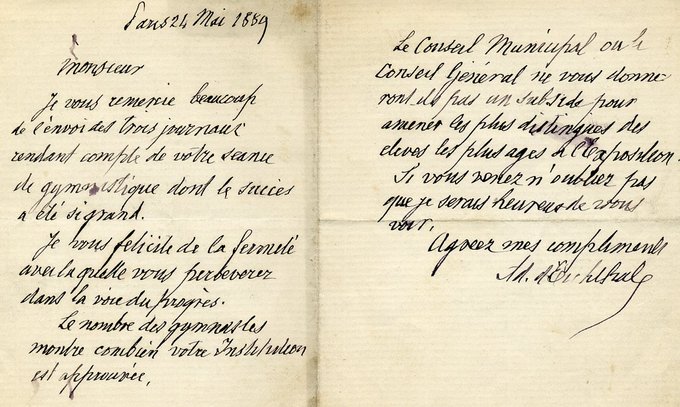 Paris 24 Mai 1889
Monsieur
Je vous remercie beaucoup
de l'envoi des trois journaux
rendant compte de votre seance
de gymnastique dont le succes
a été si grand.
Je vous félicite de la fermeté
avec laquelle vous perseverez
dans la voie du progrès.
Le nombre des gymnastes
montre combien votre Institution
est approuvée.
Le Conseil Municipal ou le
Conseil Général ne vous donne-
ront ils pas un subside pour
amener les plus distingues des
eleves les plus ages a l'Exposition.
Si vous venez n'oubliez pas
que je serais heureux de vous
voir.
Agreez mes compliments
Ad. d'Eichthal